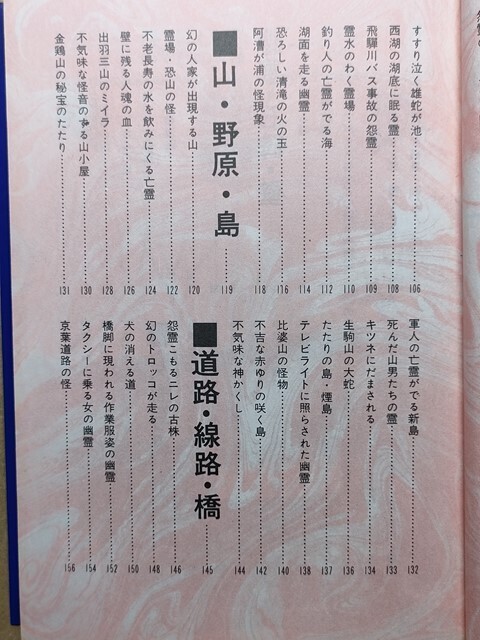 すすり泣く雄蛇が池……106
西湖の湖底に眠る霊……108
飛騨川バス事故の怨霊……109
霊水のわく霊場……110
釣り人の亡霊がでる海……112
湖面を走る幽霊……114
恐ろしい清滝の火の玉……116
阿漕が浦の怪現象……118
■山・野原・島……119
幻の人家が出現する山……120
霊場・恐山の怪……122
不老長寿の水を飲みにくる亡霊……124
壁に残る人魂の血……126
出羽三山のミイラ……128
不気味な怪音のする山小屋……130
金鶏山の秘宝のたたり……131
軍人の亡霊がでる新島……132
死んだ山男たちの霊……133
キツネにだまされる……134
生駒山の大蛇……136
たたりの島・煙島……137
テレビライトに照らされた幽霊……138
比婆山の怪物……140
不吉な赤ゆりの咲く島……142
不気味な神かくし……144
■道路・線路・橋……145
怨霊こもるニレの古株……146
幻のトロッコが走る……148
犬の消える道……150
橋脚に現われる作業服姿の幽霊……152
タクシーに乗る女の幽霊……154
京葉道路の怪……156